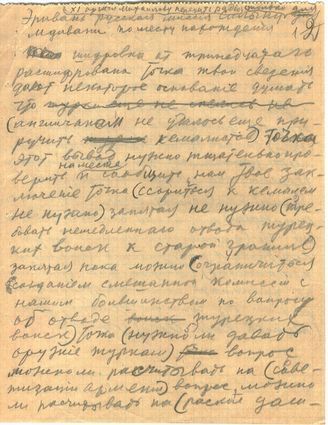 Эривань русская миссия
ледовати по месту нахождения
шифровка от тринадцатого
расшифрована Точка твои сведения
дают некоторое основание думать
что
(англичанам не удалось еще при-
ручить кемалистов) точка
этот вывод нужно тщательно про-
верить и сообщить нам твое зак-
лючение Точка (ссориться с кемалем
не нужно) запятая не нужно (тре-
бовать немедленного отвода турец-
ких войск к старой границе)
запятая пока можно (ограничиться
созданием смешанной комиссии с
нашим большинством по вопросу
об отводе турецких
войск) Точка (нужно ли давать
оружие туркам) вопрос
можно ли рассчитывать на (сове-
тизацию армении) вопрос можно
ли расчитывать на